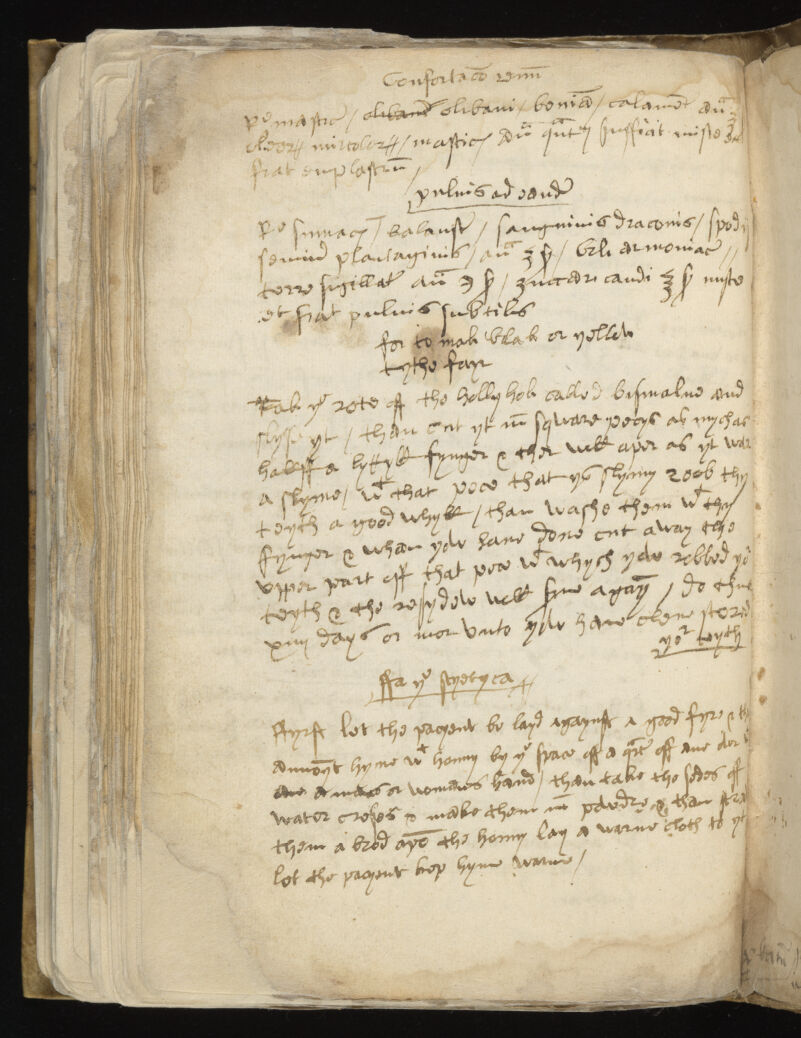 Confortacō
Re mastic / oliband olibani / / calament añ
mirtolor / mastic añ qñt sufficit misce
fiat emplastrū /
pulvis ad eande
Re sumac / balaust / sanguinis draconis / spodi
semin plantaginis / añ ʒ ß / boli armoniac /
terre sigillat añ ℈ ß / zuccari candi ʒ ß misce
et fiat pulvis subtilis
for to mak blak or yellow
tythe fayr
Tak yᵉ rote off the hollyhok called bismalue and
slyse yt / than cut yt in sqware pecys as mych as
halff a lyttyll fynger & ther wyll aper as yt war
a slyme / wᵗ that pece that ys slymy roob thy
teyth a good whyll / than washe them wᵗ thy
fynger & whan yow have done cut away the
upper part off that pece wᵗ whych yow robbed yoʳ
teyth & the resydew wyll sue agayn / do thus
xiiij days or mor unto yow have clene scored
yoʳ teyth
ffa yᵉ scyetyca
ffyrst let the pacyent be layd agaynst a good fyre & th
annoynt hyme wᵗ honny by yᵉ space off a qrt off ane owr
ane a mans or womans hand / than take the sedes off
water cresys & make them in powdre & than stra
them a brod apō the honny lay a warme cloth to yt
let the pacyent kep hyme warme /